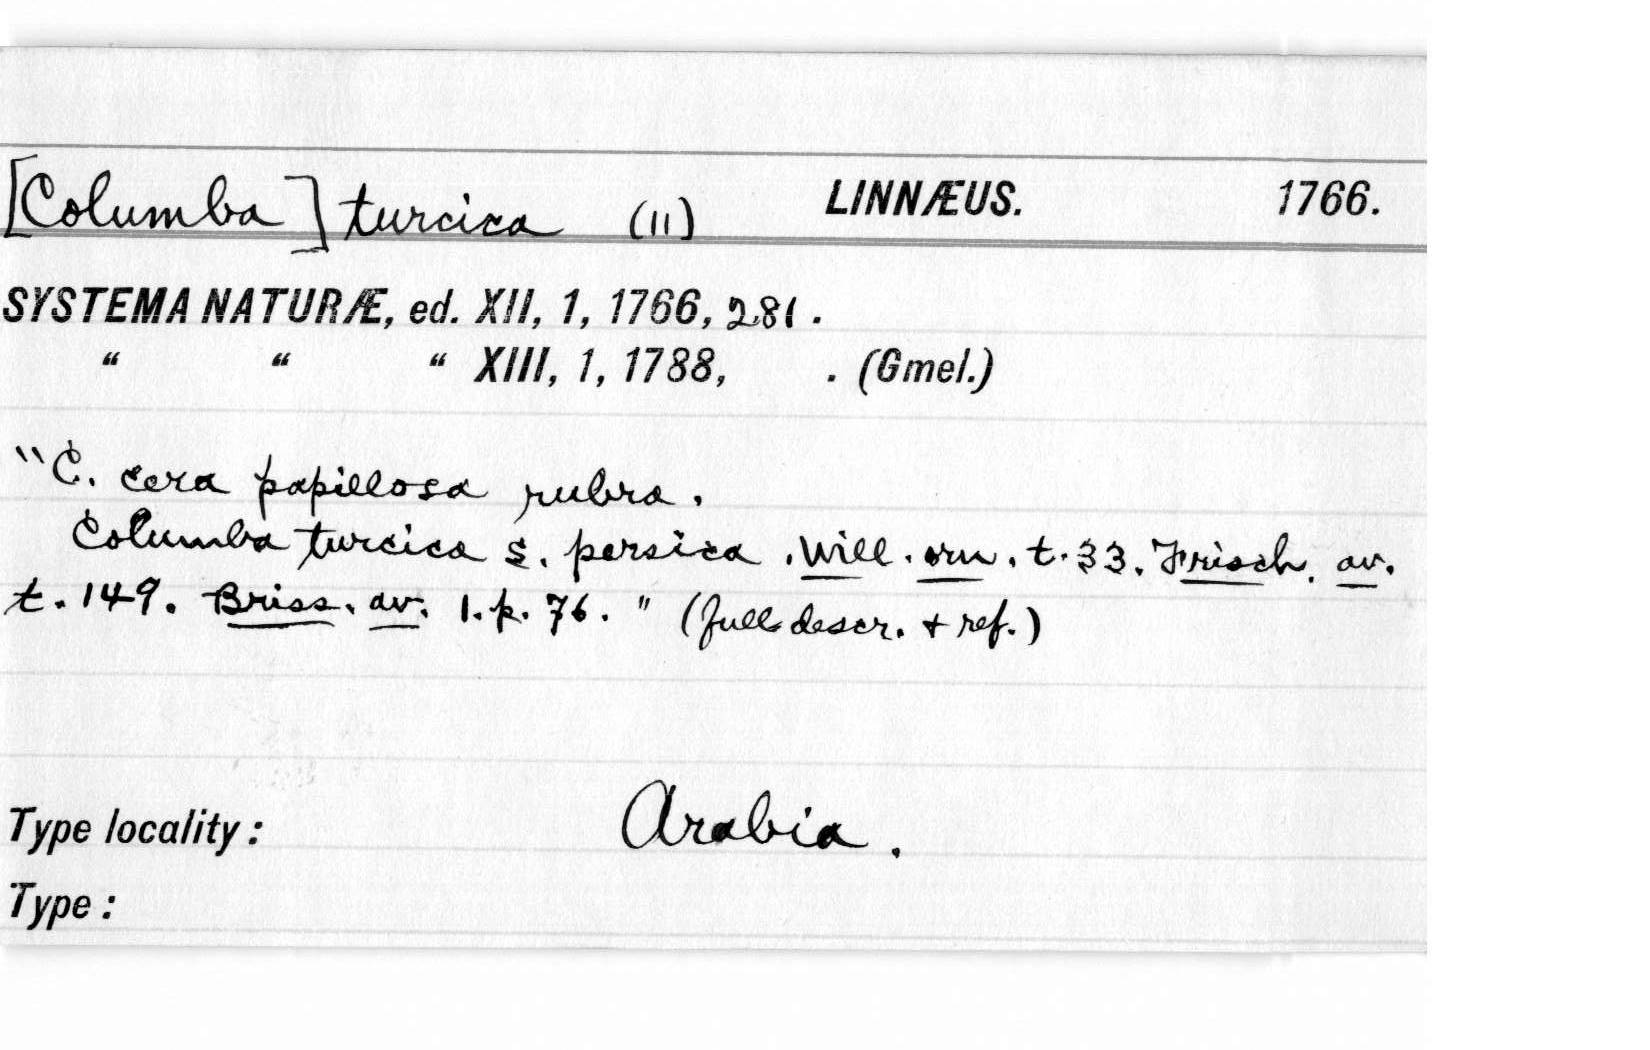 [Columba] turcica (11) LINNÆUS. 1766.
SYSTEMA NATURÆ, ed. XII, 1, 1766, 281.
" " " XIII, 1, 1788, . (Gmel.)
"C. cera papillosa rubra.
Columba turcica s. persica. Will. orn. t. 33. Frisch. av.
t. 149. Briss. av. 1. p. 76." (full descr. + ref.)
Type locality: Arabia.
Type: